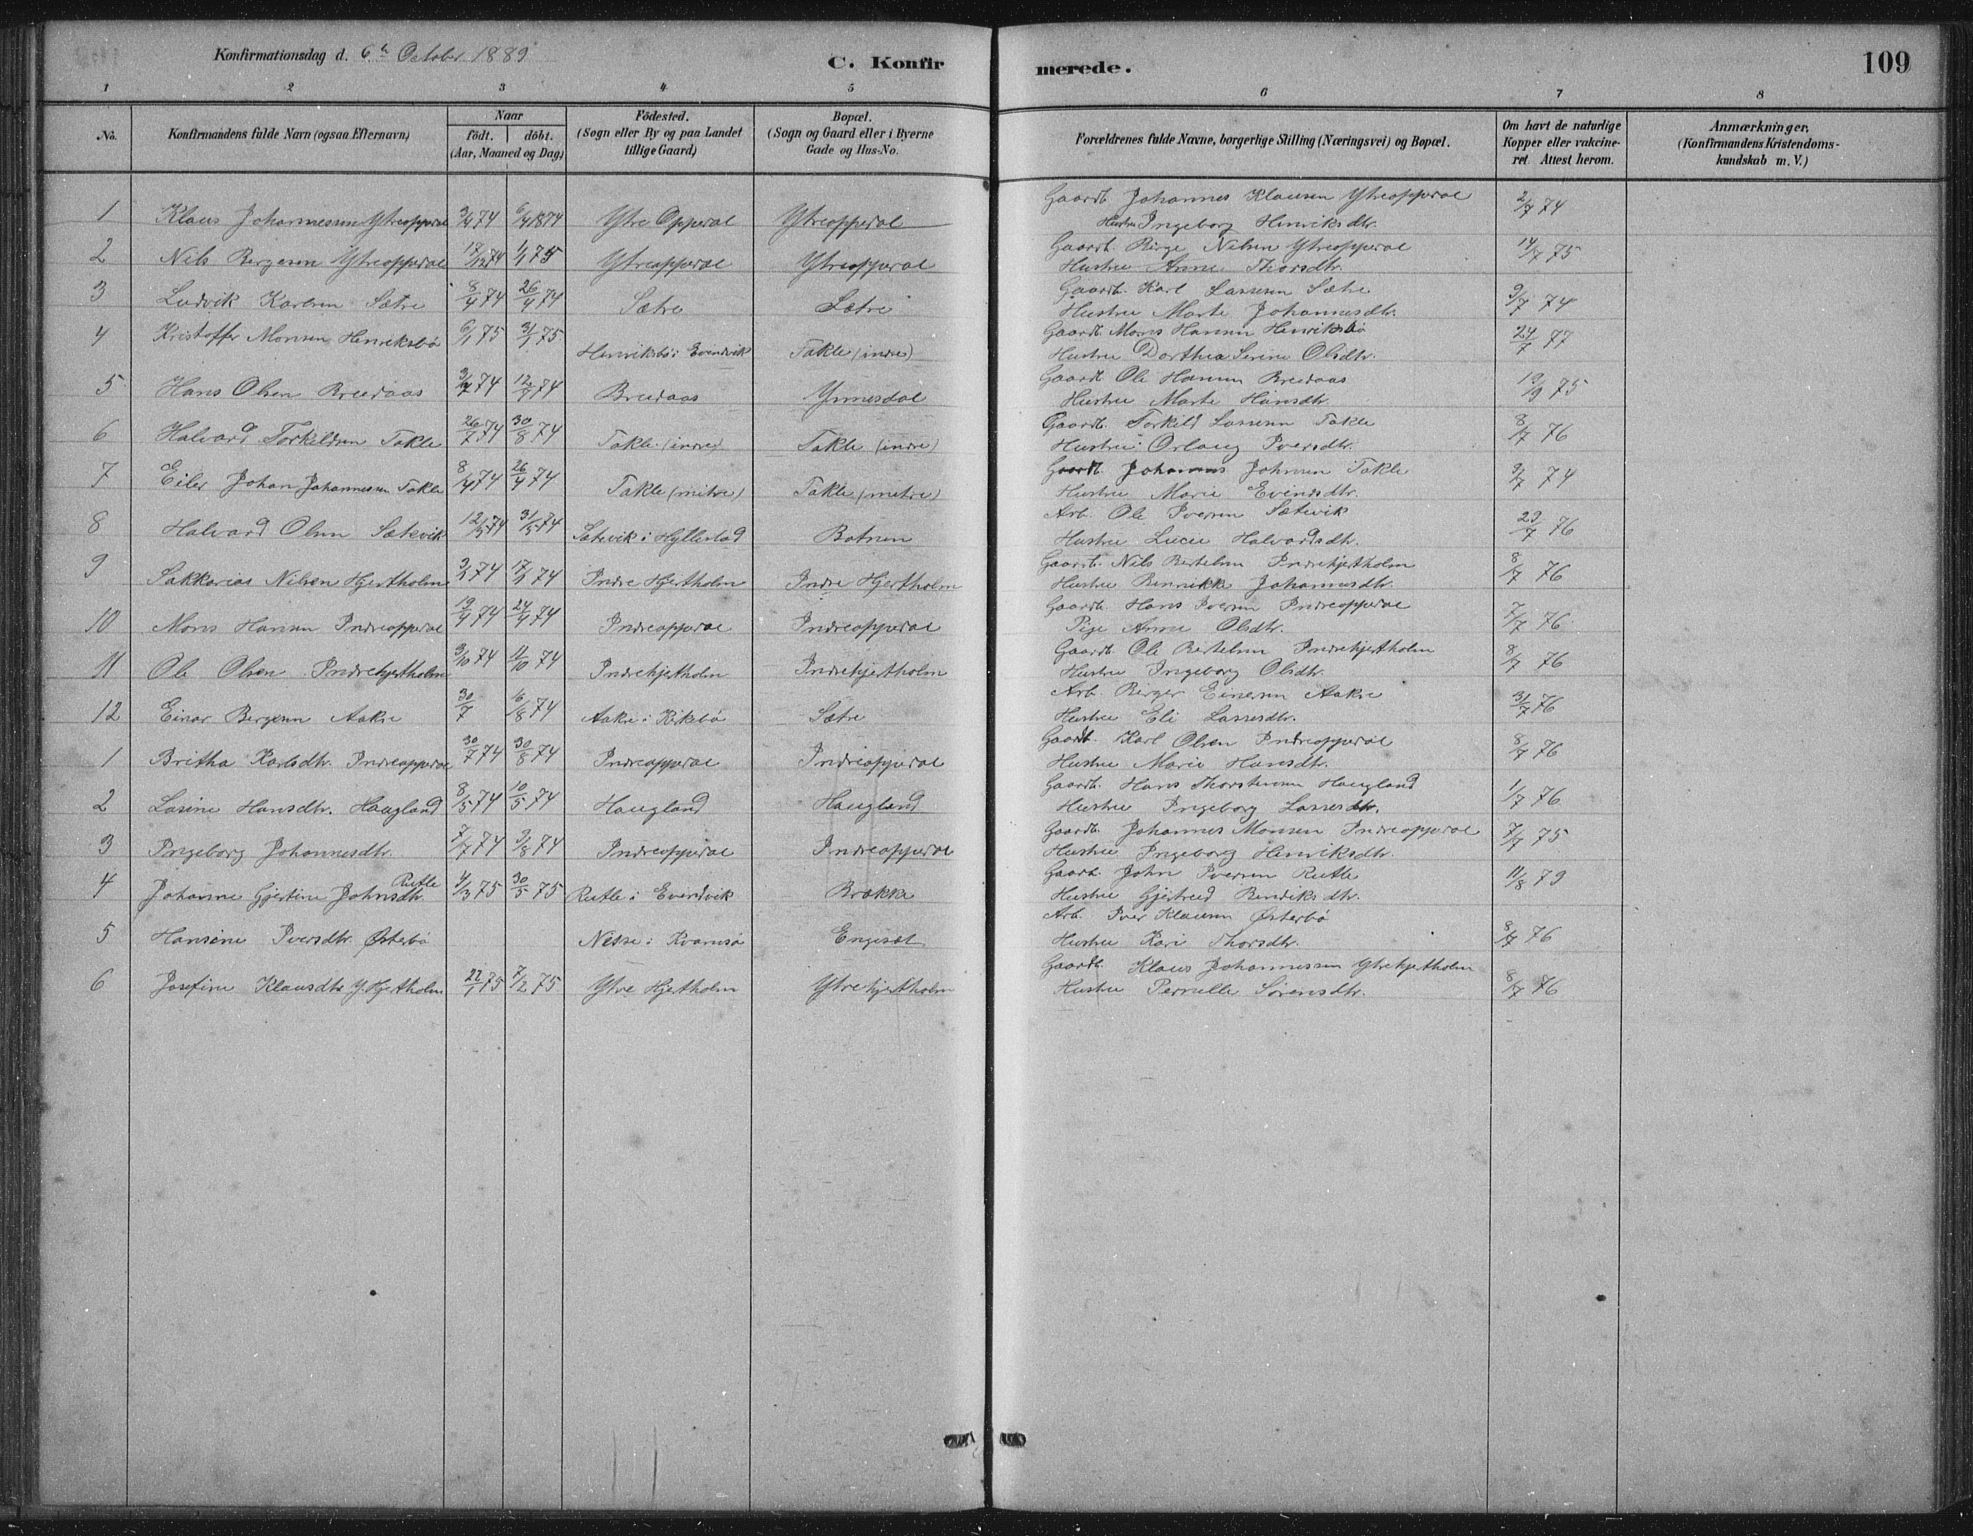 Konfirmationsdag d. 6te October 1889
C. Konfirmerede.
109
1 2 3 4 5 6 7 8
No. Konfirmandens fulde Navn (ogsaa Efternavn) Naar födt. döbt. (Aar, Maaned og Dag) Födested. (Sogn eller By og paa Landet tillige Gaard) Bopæl. (Sogn og Gaard eller i Byerne Gade og Hus-No. Forældrenes fulde Navne, borgerlige Stilling (Næringsvei) og Bopæl. Om havt de naturlige Kopper eller vakcineret. Attest herom. Anmærkninger, (Konfirmandens Kristendomskundskab m. V.)
1 Klaus Johannessen Ytreopperdal 74 6/4 1874 Ytre Opperdal Ytreopperdal Gaardb. Johannes Klausen Ytreopperdal 2/7 74
Hustru Ingeborg Henriksdtr.
2 Nils Bergesen Ytreopperdal 18/12 74 1/1 75 Ytreopperdal Ytreopperdal Gaardb. Birge Nilsen Ytreopperdal 14/7 75
Hustru Anne Thorsdtr.
3 Ludvik Karlsen Sætre 8/4 74 26/4 74 Sætre Sætre Gaardb. Karl Lassesen Sætre 9/7 74
Hustru Marte Johannesdtr.
4 Kristoffer Monsen Henriksbö 6/1 75 31/1 75 Henriksbö i Evendvik Takle (indre) Gaardb. Mons Hansen Henriksbö 24/7 77
Hustru Dorthea Serine Olsdtr.
5 Hans Olsen Breidaas 3/7 74 12/7 74 Breidaas Ynnesdal Gaardb. Ole Hansen Breidaas 19/9 75
Hustru Marte Hansdtr.
6 Halvard Torkildsen Takle 26/7 74 30/8 74 Takle (indre) Takle (indre) Gaardb. Torkild Lassesen Takle 8/7 76
Hustru Orlaug Iversdtr.
7 Eiler Johan Johannessen Takle 8/4 74 26/4 74 Takle (mitre) Takle (metre) Gaardb. Johannes Johnsen Takle 3/7 74
Hustru Marie Evindsdtr.
8 Halvard Olsen Sætevik 12/5 74 31/5 74 Sætevik i Hyllestad Botnen Arb. Ole Iversen Sætevik 29/7 76
Hustru Lucie Halvardsdtr.
9 Sakkarias Nilsen Hjertholm 74 74 Indre Hjertholm Indre Hjertholm Gaardb. Nils Bertelsen Indrehjertholm 8/7 76
Hustru Rennikke Johannesdtr.
10 Mons Hansen Indreopperdal 19/4 74 24/4 74 Indreopperdal Indreopperdal Gaardb. Hans Iversen Indreopperdal 7/7 76
Pige Anne Olsdtr.
11 Ole Olsen Indrehjertholm 3/10 74 11/10 74 Indrehjertholm Indrehjertholm Gaardb. Ole Bertelsen Indrehjertholm 8/7 76
Hustru Ingeborg Olsdtr.
12 Einar Bergesen Aakre 30/7 16/8 74 Aakre i Kirkebö Sætre Arb. Birger Einersen Aakre 31/7 76
Hustru Eli Lassesdtr.
1 Britha Karlsdtr. Indreopperdal 30/7 74 30/8 74 Indreopperdal Indreopperdal Gaardb. Karl Olsen Indreopperdal 8/7 76
Hustru Marie Hansdtr.
2 Lasine Hansdtr. Haugland 8/5 74 10/5 74 Haugland Haugland Gaardb. Hans Thorstensen Haugland 1/7 76
Hustru Ingeborg Lassesdtr.
3 Ingeborg Johannesdtr. 7/7 74 3/8 74 Indreopperdal Indreopperdal Gaardb. Johannes Monsen Indreopperdal 7/7 75
Hustru Ingeborg Henriksdtr.
4 Johanne Gjertine Johnsdtr. Rutle 4/3 75 30/5 75 Rutle i Evendvik Brakke Gaardb. John Iversen Rutle 11/8 79
Hustru Gjertrud Bendiksdtr.
5 Hansine Iversdtr. Österbö Nesse i Kvamsö Engesæt Arb. Iver Klausen Österbö 8/7 76
Hustru Kari Thorsdtr.
6 Josefine Klausdtr. Y. Hjertholm 22/1 75 7/2 75 Ytre Hjertholm Ytrehjertholm Gaardb. Klaus Johannessen Ytrehjertholm 8/7 76
Hustru Pernille Sörensdtr.